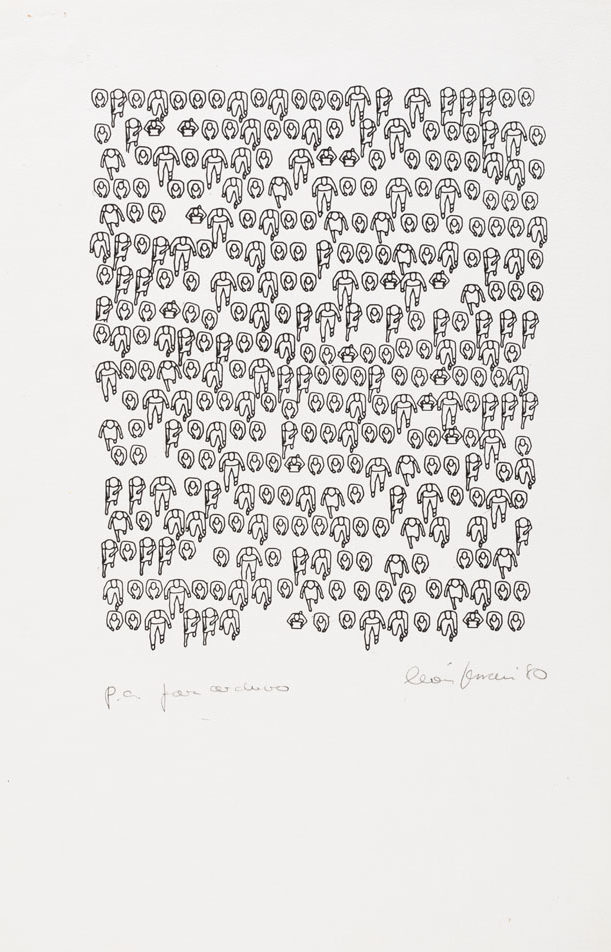 p.a. para archivo
león ferrari '80